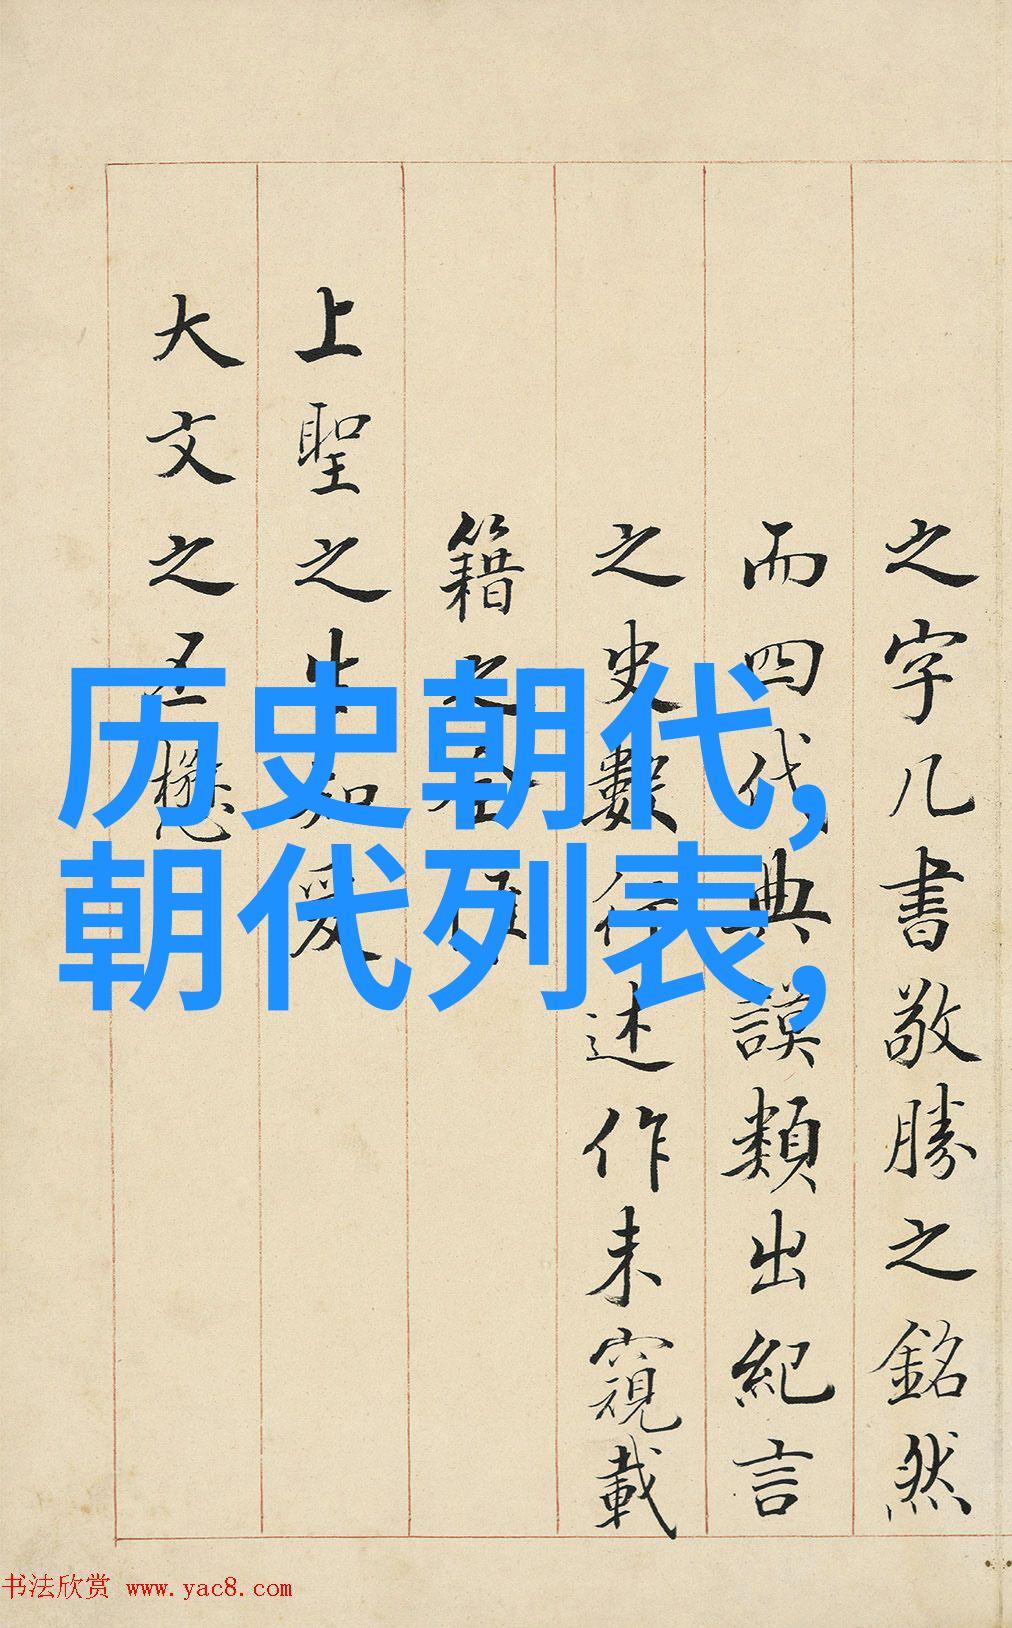 之字几書敬勝之銘然
而四代典謨類出紀言
之史數行述作未窺載
籍之
上聖之生知爰
大文之丕懋
历史朝代,
朝代列表,
书法欣赏 www.yac8.com